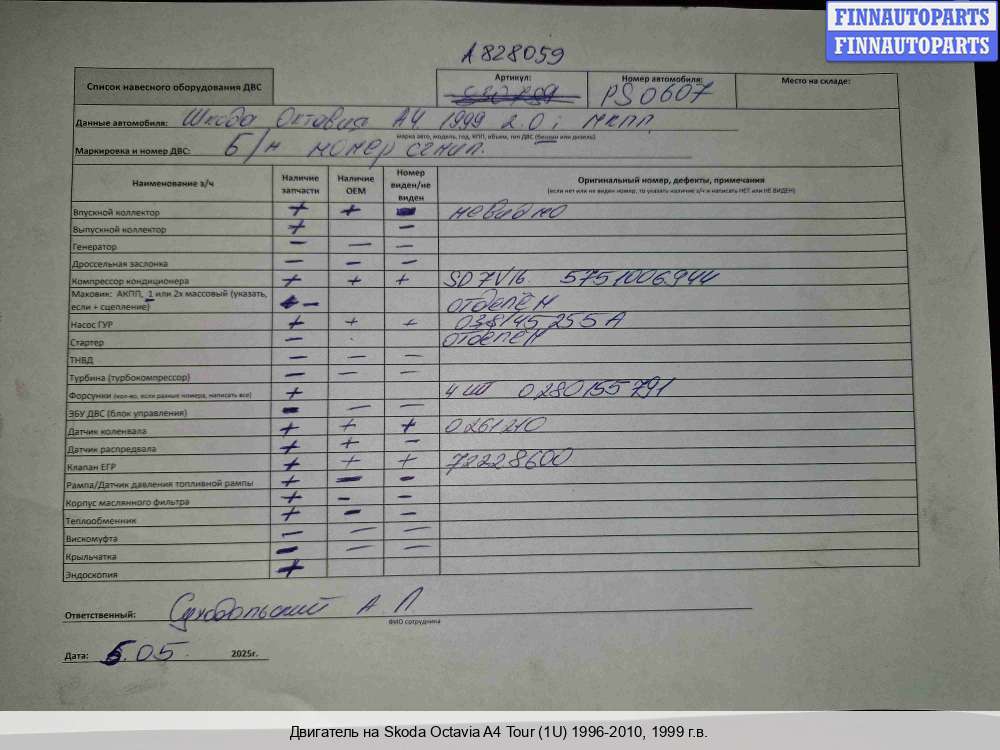 FINNAUTOPARTS
FINNAUTOPARTS
A828059
Список навесного оборудования ДВС
Артикул:
Номер автомобиля: PS0607
Место на складе:
Данные автомобиля: Шкода Октавия А4 1999 2.0i МКПП
марка авто, модель, год, КПП, объем, тип ДВС (бензин или дизель)
Маркировка и номер ДВС: б/н номер сгнил.
Наименование з/ч Наличие запчасти Наличие ОЕМ Номер виден/не виден Оригинальный номер, дефекты, примечания
(если нет или не виден номер, то указать наличие з/ч и написать НЕТ или НЕ ВИДЕН)
Впускной коллектор + + - не видно
Выпускной коллектор + -
Генератор - - -
Дроссельная заслонка - - -
Компрессор кондиционера + + + SD7V16. 5751006944
Маховик: АКПП, 1 или 2х массовый (указать, если + сцепление) + - отделён
Насос ГУР + + + 038145255A
Стартер - отделён
ТНВД - - -
Турбина (турбокомпрессор) - - -
Форсунки (кол-во, если разные номера, написать все) + 4 шт 0280155791
ЭБУ ДВС (блок управления) - - -
Датчик коленвала + + + 0261210
Датчик распредвала + + -
Клапан ЕГР + + + 72228600
Рампа/Датчик давления топливной рампы + - -
Корпус маслянного фильтра + - -
Теплообменник + - -
Вискомуфта - - -
Крыльчатка - - -
Эндоскопия +
Ответственный: Суходольский А.П
ФИО сотрудника
Дата: 5.05. 2025г.
Двигатель на Skoda Octavia A4 Tour (1U) 1996-2010, 1999 г.в.